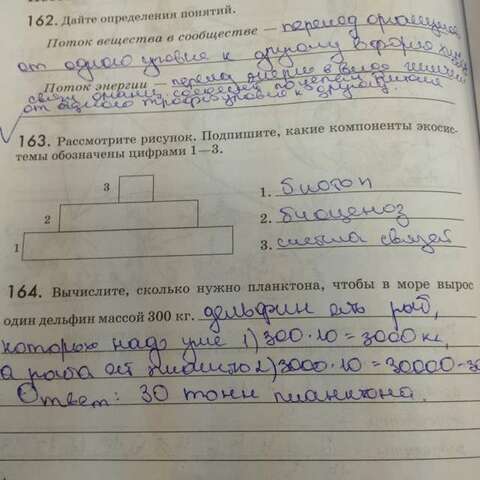 162. Дайте определения понятий.
Поток вещества в сообществе — перевод
от одного уровня к другому в форме
Поток энергии — перевод энергии в виде
от одного уровня к другому.
163. Рассмотрите рисунок. Подпишите, какие компоненты экосис-
темы обозначены цифрами 1—3.
3
1. биотоп
2
2. биоценоз
1
3. система связей
164. Вычислите, сколько нужно планктона, чтобы в море вырос
один дельфин массой 300 кг. дельфин ест рыб,
которых надо уже 1) 300·10 = 3000 кг,
а рыба ест 2) 3000·10 = 30000
Ответ: 30 тонн планктона.